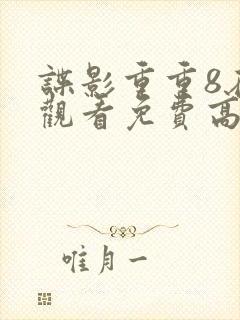 諜影重重8
觀看免費高
唯月一